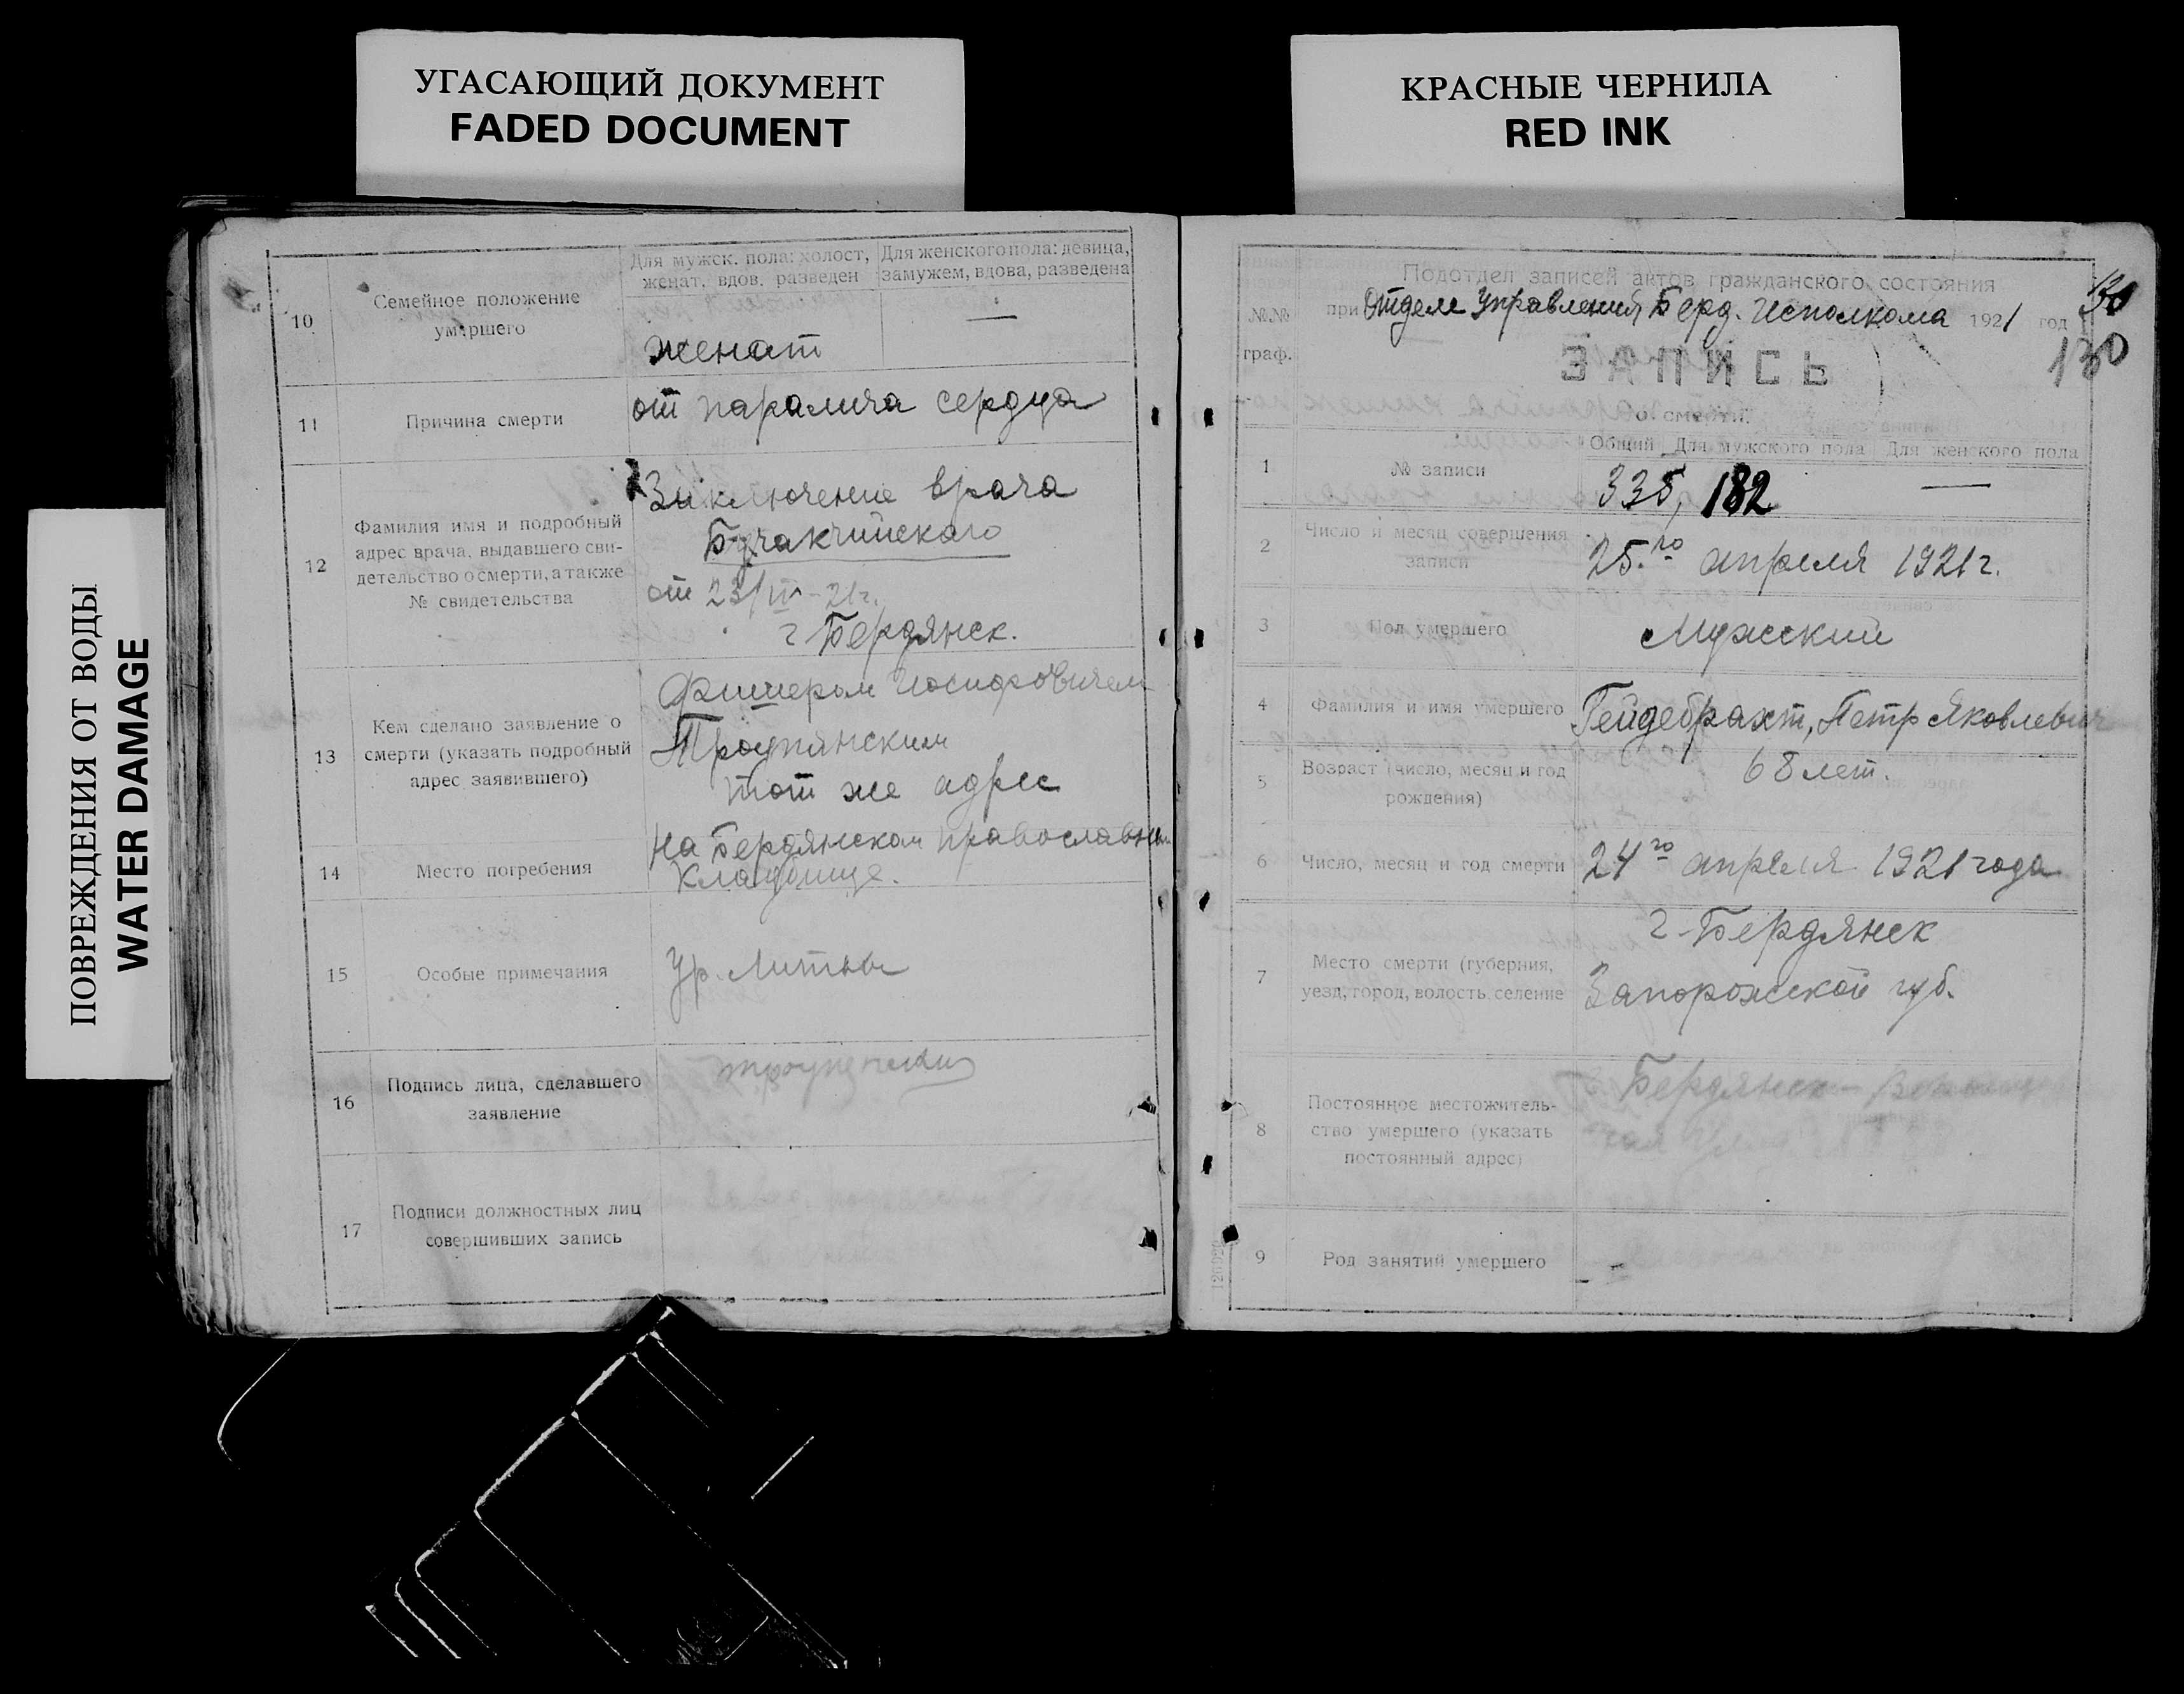 УГАСАЮЩИЙ ДОКУМЕНТ
FADED DOCUMENT
КРАСНЫЕ ЧЕРНИЛА
RED INK
ПОВРЕЖДЕНИЯ ОТ ВОДЫ
WATER DAMAGE
Для мужск. пола: холост, женат, вдов, разведен
Для женского пола: девица, замужем, вдова, разведена
10
Семейное положение
умершего
женат
—
11
Причина смерти
от паралича сердца
12
Фамилия имя и подробный
адрес врача, выдавшего сви-
детельство о смерти, а также
№ свидетельства
Заключение врача
от 23/IV-21г.
г Бердянск.
13
Кем сделано заявление о
смерти (указать подробный
адрес заявившего)
Иосифовичем
тот же адрес
14
Место погребения
на Бердянском православном
кладбище.
15
Особые примечания
Ур. Литвы
16
Подпись лица, сделавшего
заявление
17
Подписи должностных лиц
совершивших запись
№№
граф.
Подотдел записей актов гражданского состояния
при Отделе Управления Берд. Исполкома 1921 год
130
130
ЗАПИСЬ
о смерти.
Общий Для мужского пола Для женского пола
1
№ записи
335, 182 —
2
Число и месяц совершения
записи
25.го апреля 1921г.
3
Пол умершего
Мужский
4
Фамилия и имя умершего
Гейдебрахт, Петр Яковлевич
5
Возраст (число, месяц и год
рождения)
68 лет.
6
Число, месяц и год смерти
24го апреля 1921 года
7
Место смерти (губерния,
уезд, город, волость, селение
г. Бердянск
Запорожской губ.
8
Постоянное местожитель-
ство умершего (указать
постоянный адрес)
г. Бердянск –
9
Род занятий умершего
–